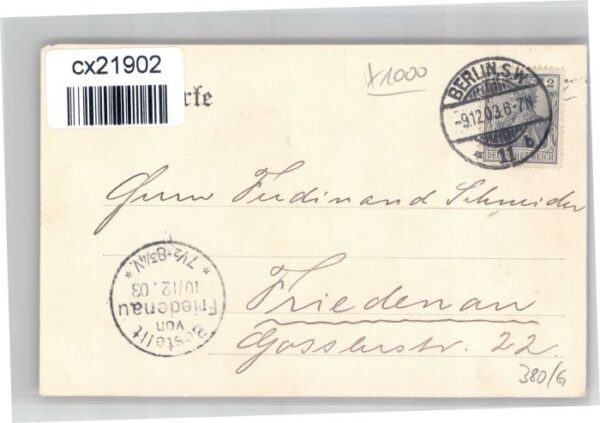 cx21902
rte
x1000
BERLIN S.W.
-9.12.03.6-7N.
* 11 b
2
DEUTSCHES REICH
Herrn Ferdinand Schneider
Friedenau
Gosslerstr. 22.
Bestellt
von
Friedenau
10/12.03
* 7½-8¾V. *
380/G